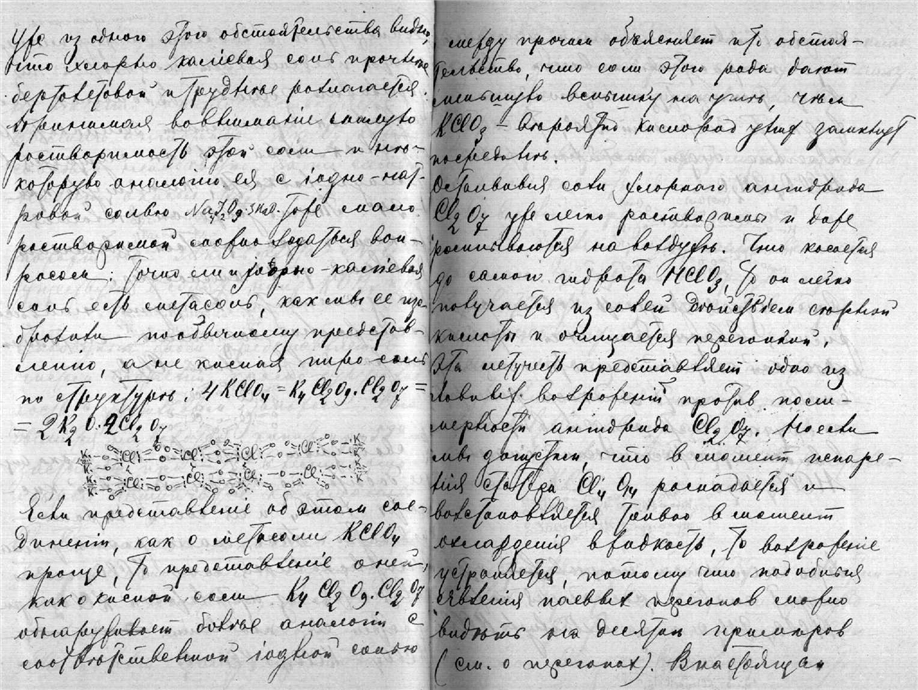 Уже из одного этого обстоятельства видно,
что хлорно-калiевая соль прочнее
бертолетовой и труднее разлагается.
Принимая во вниманiе слабую
растворимость этой соли и нѣ-
которую аналогiю ея с iодно-нат-
ровой солью тоже мало
растворимой можно задаться воп-
росом: точно ли и хлорно-калiевая
соль есть метасоль, как мы ее изо-
бразили по обычному представ-
ленiю, а не кислая пиро соль
по структурѣ: 4KClO₄ = K₄Cl₂O₉.Cl₂O₇ =
= 2K₂O.2Cl₂O₇
Если представленiе об этом сое-
диненiи, как о метасоли KClO₄
проще, то представленiе о ней,
как о кислой соли K₄Cl₂O₉.Cl₂O₇
обнаруживает более аналогiи с
соответственной iодной солью
и между прочим объясняет то обстоя-
тельство, что соли этого рода дают
меньшую вспышку на углѣ, чѣм
KClO₃ – вѣроятно кислород у них замкнут
посредине.
Остальныя соли хлорного ангидрида
Cl₂O₇ уже легко растворимы и даже
расплываются на воздухѣ. Что касается
до самого гидрата HClO₃, то он легко
получается из солей дѣйствiем сѣрной
кислоты и очищается перегонкой.
Эта летучесть представляет одно из
главных возраженiй против поли-
мерности ангидрида Cl₂O₇. Но если
мы допустим, что в момент испаре-
нiя частица Cl₄O₁₄ распадается и
возстановляется только в момент
охлажденiя в жидкость, то возраженiе
устраняется, потому что подобныя
явленiя паевых перегонов можно
видѣть на десятки примѣров
(см. о перегонах). В настоящем